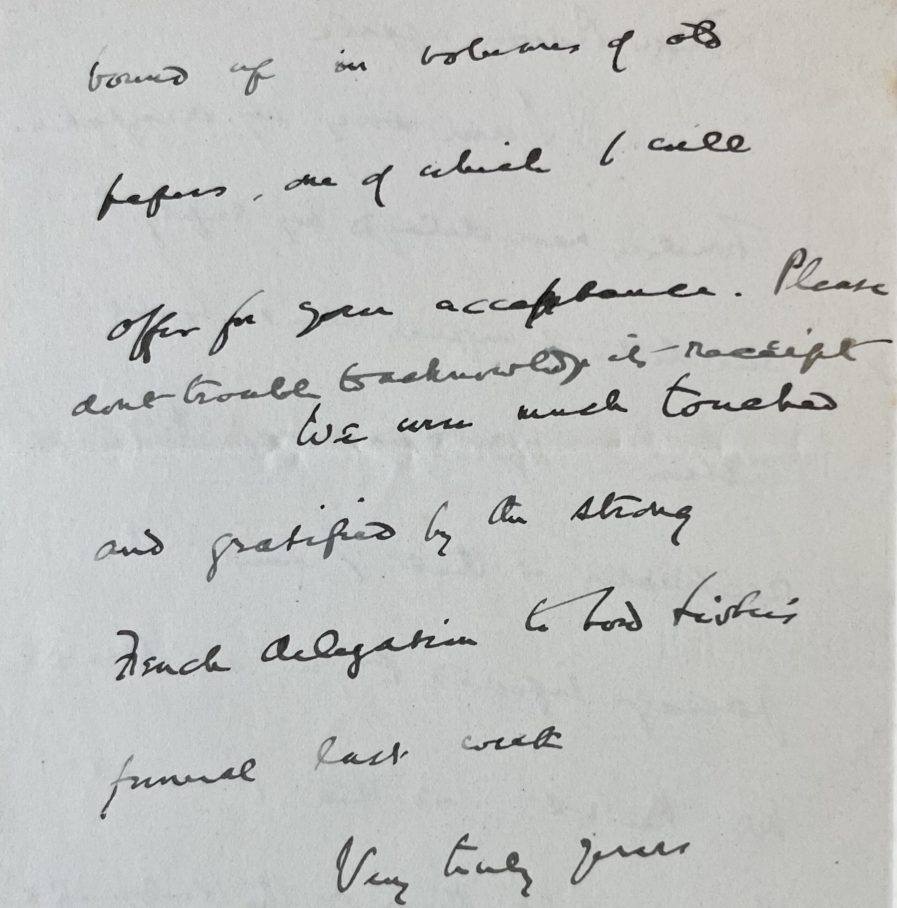 bound up in volumes of old
papers, one of which I will
offer for your acceptance. Please
dont trouble to acknowledge its receipt
We were much touched
and gratified by the strong
French delegation to Lord Lister's
funeral last week
Very truly yours